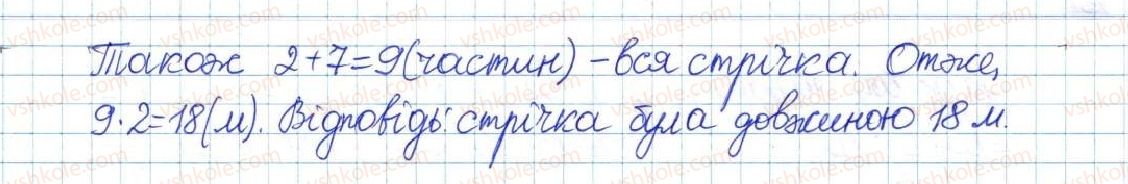 Також 2+7=9(частин) – вся стрічка. Отже,
9·2=18(м). Відповідь: стрічка була довжиною 18 м.